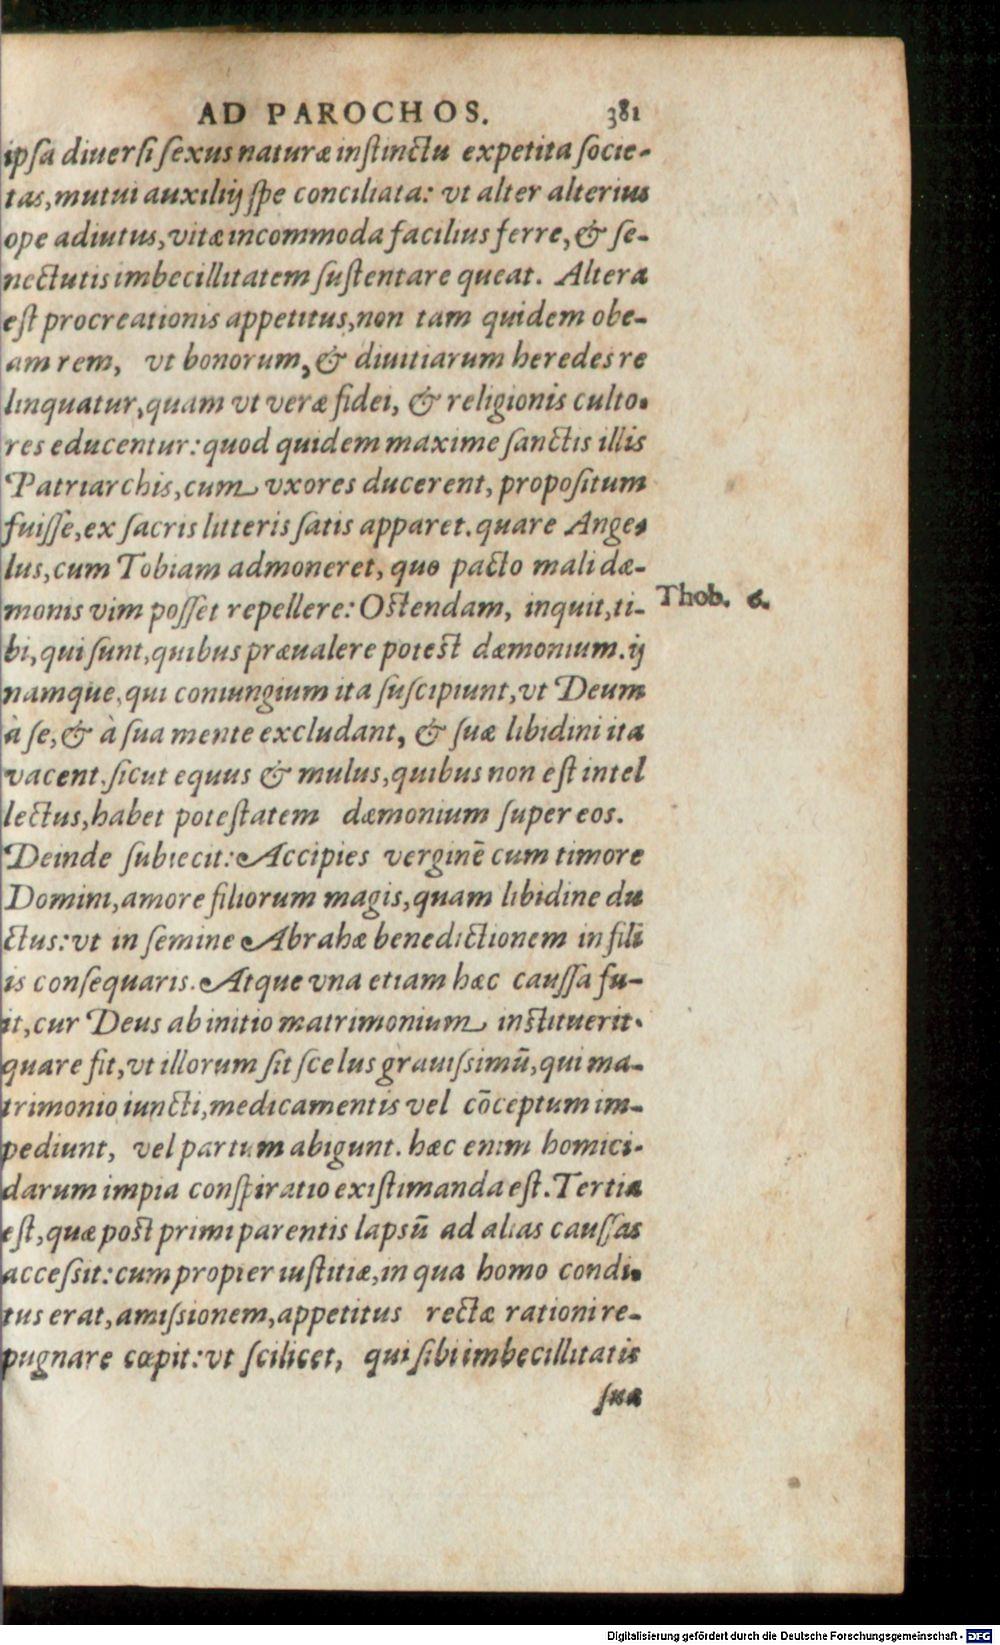 AD PAROCHOS. 381
ipſa diuerſi ſexus naturæ inſtinctu expetita ſocie-
tas, mutui auxilij ſpe conciliata: vt alter alterius
ope adiutus, vitæ incommoda facilius ferre, & ſe-
nectutis imbecillitatem ſuſtentare queat. Altera
eſt procreationis appetitus, non tam quidem obe-
am rem, vt bonorum, & diuitiarum heredes re
linquatur, quam vt veræ fidei, & religionis culto-
res educentur: quod quidem maxime ſanctis illis
Patriarchis, cum vxores ducerent, propoſitum
fuiſſe, ex ſacris litteris ſatis apparet. quare Ange-
lus, cum Tobiam admoneret, quo pacto mali dæ-
monis vim poſſet repellere: Oſtendam, inquit, ti-
Thob. 6.
bi, qui ſunt, quibus præualere poteſt dæmonium. ij
namque, qui coniungium ita ſuſcipiunt, vt Deum
à ſe, & à ſua mente excludant, & ſuæ libidini ita
vacent. ſicut equus & mulus, quibus non eſt intel
lectus, habet poteſtatem dæmonium ſuper eos.
Deinde ſubiecit: Accipies verginē cum timore
Domini, amore filiorum magis, quam libidine du
ctus: vt in ſemine Abrahæ benedictionem in fili
is conſequaris. Atque vna etiam hæc cauſſa fu-
it, cur Deus ab initio matrimonium inſtituerit.
quare fit, vt illorum ſit ſcelus grauiſsimū, qui ma-
trimonio iuncti, medicamentis vel cōceptum im-
pediunt, vel partum abigunt. hæc enim homici-
darum impia conſpiratio exiſtimanda eſt. Tertia
eſt, quæ poſt primi parentis lapſū ad alias cauſſas
acceſsit: cum propter iuſtitiæ, in qua homo condi-
tus erat, amiſsionem, appetitus rectæ rationi re-
pugnare cœpit: vt ſcilicet, qui ſibi imbecillitatis
ſuæ
Digitalisierung gefördert durch die Deutsche Forschungsgemeinschaft - DFG